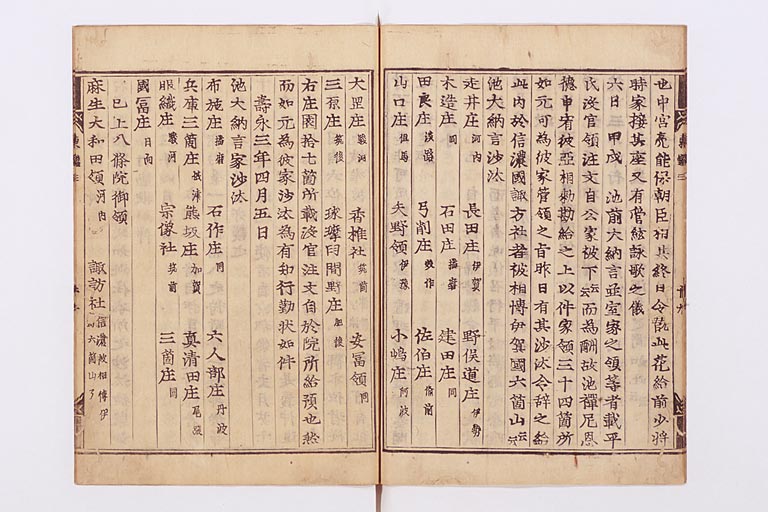 也中宮亮能保朝臣相共終日令翫此花給前少將
時家接其座又有管絃詠歌之儀
六日 甲戌 池前大納言並室家之領等者載平
氏没官領注文自公家被下云云而為酬故池禪尼恩
德申宥彼亞相勅勘給之上以件家領三十四箇所
如元可為彼家管領之旨昨日有其沙汰令辞之給
此内於信濃國諏方社者被相博伊賀國六箇山云云
池大納言沙汰
走井庄 河内 長田庄 伊賀 野俣道庄 伊勢
木造庄 同 石田庄 播磨 建田庄 同
由良庄 淡路 弓削庄 美作 佐伯庄 備前
山口庄 但馬 矢野領 伊豫 小嶋庄 阿波
大罡庄 駿河 香椎社 筑前 安冨領 同
三原庄 筑後 球摩臼間野庄 肥後
右庄園拾七箇所載没官注文自於院所給預也然
而如元為彼家沙汰為有知行勤状如件
壽永三年四月五日
池大納言家沙汰
布施庄 播磨 石作庄 同 六人部庄 丹波
兵庫三箇庄 攝津 熊坂庄 加賀 真清田庄 尾張
服織庄 駿河 宗像社 筑前 三箇庄 同
國冨庄 日向
已上八條院御領
麻生大和田領 河内 諏訪社 信濃被相博伊賀六箇山了